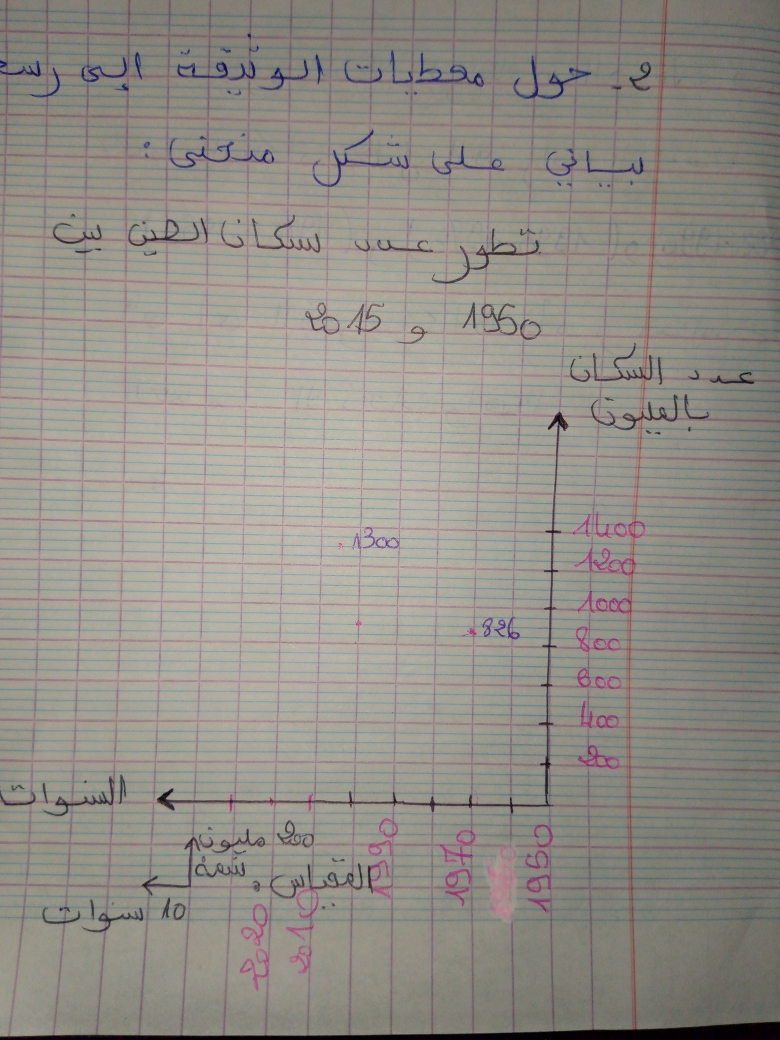 2. حول معطيات الوثيقة إلى رسم
بياني على شكل منحنى :
تطور عدد سكان الصين بين
1950 و 2015
عدد السكان
بالمليون
1400
1300
1200
1000
826
800
600
400
200
السنوات
1950
1970
1990
2010
2020
200 مليون
المقياس . 1سم
10 سنوات